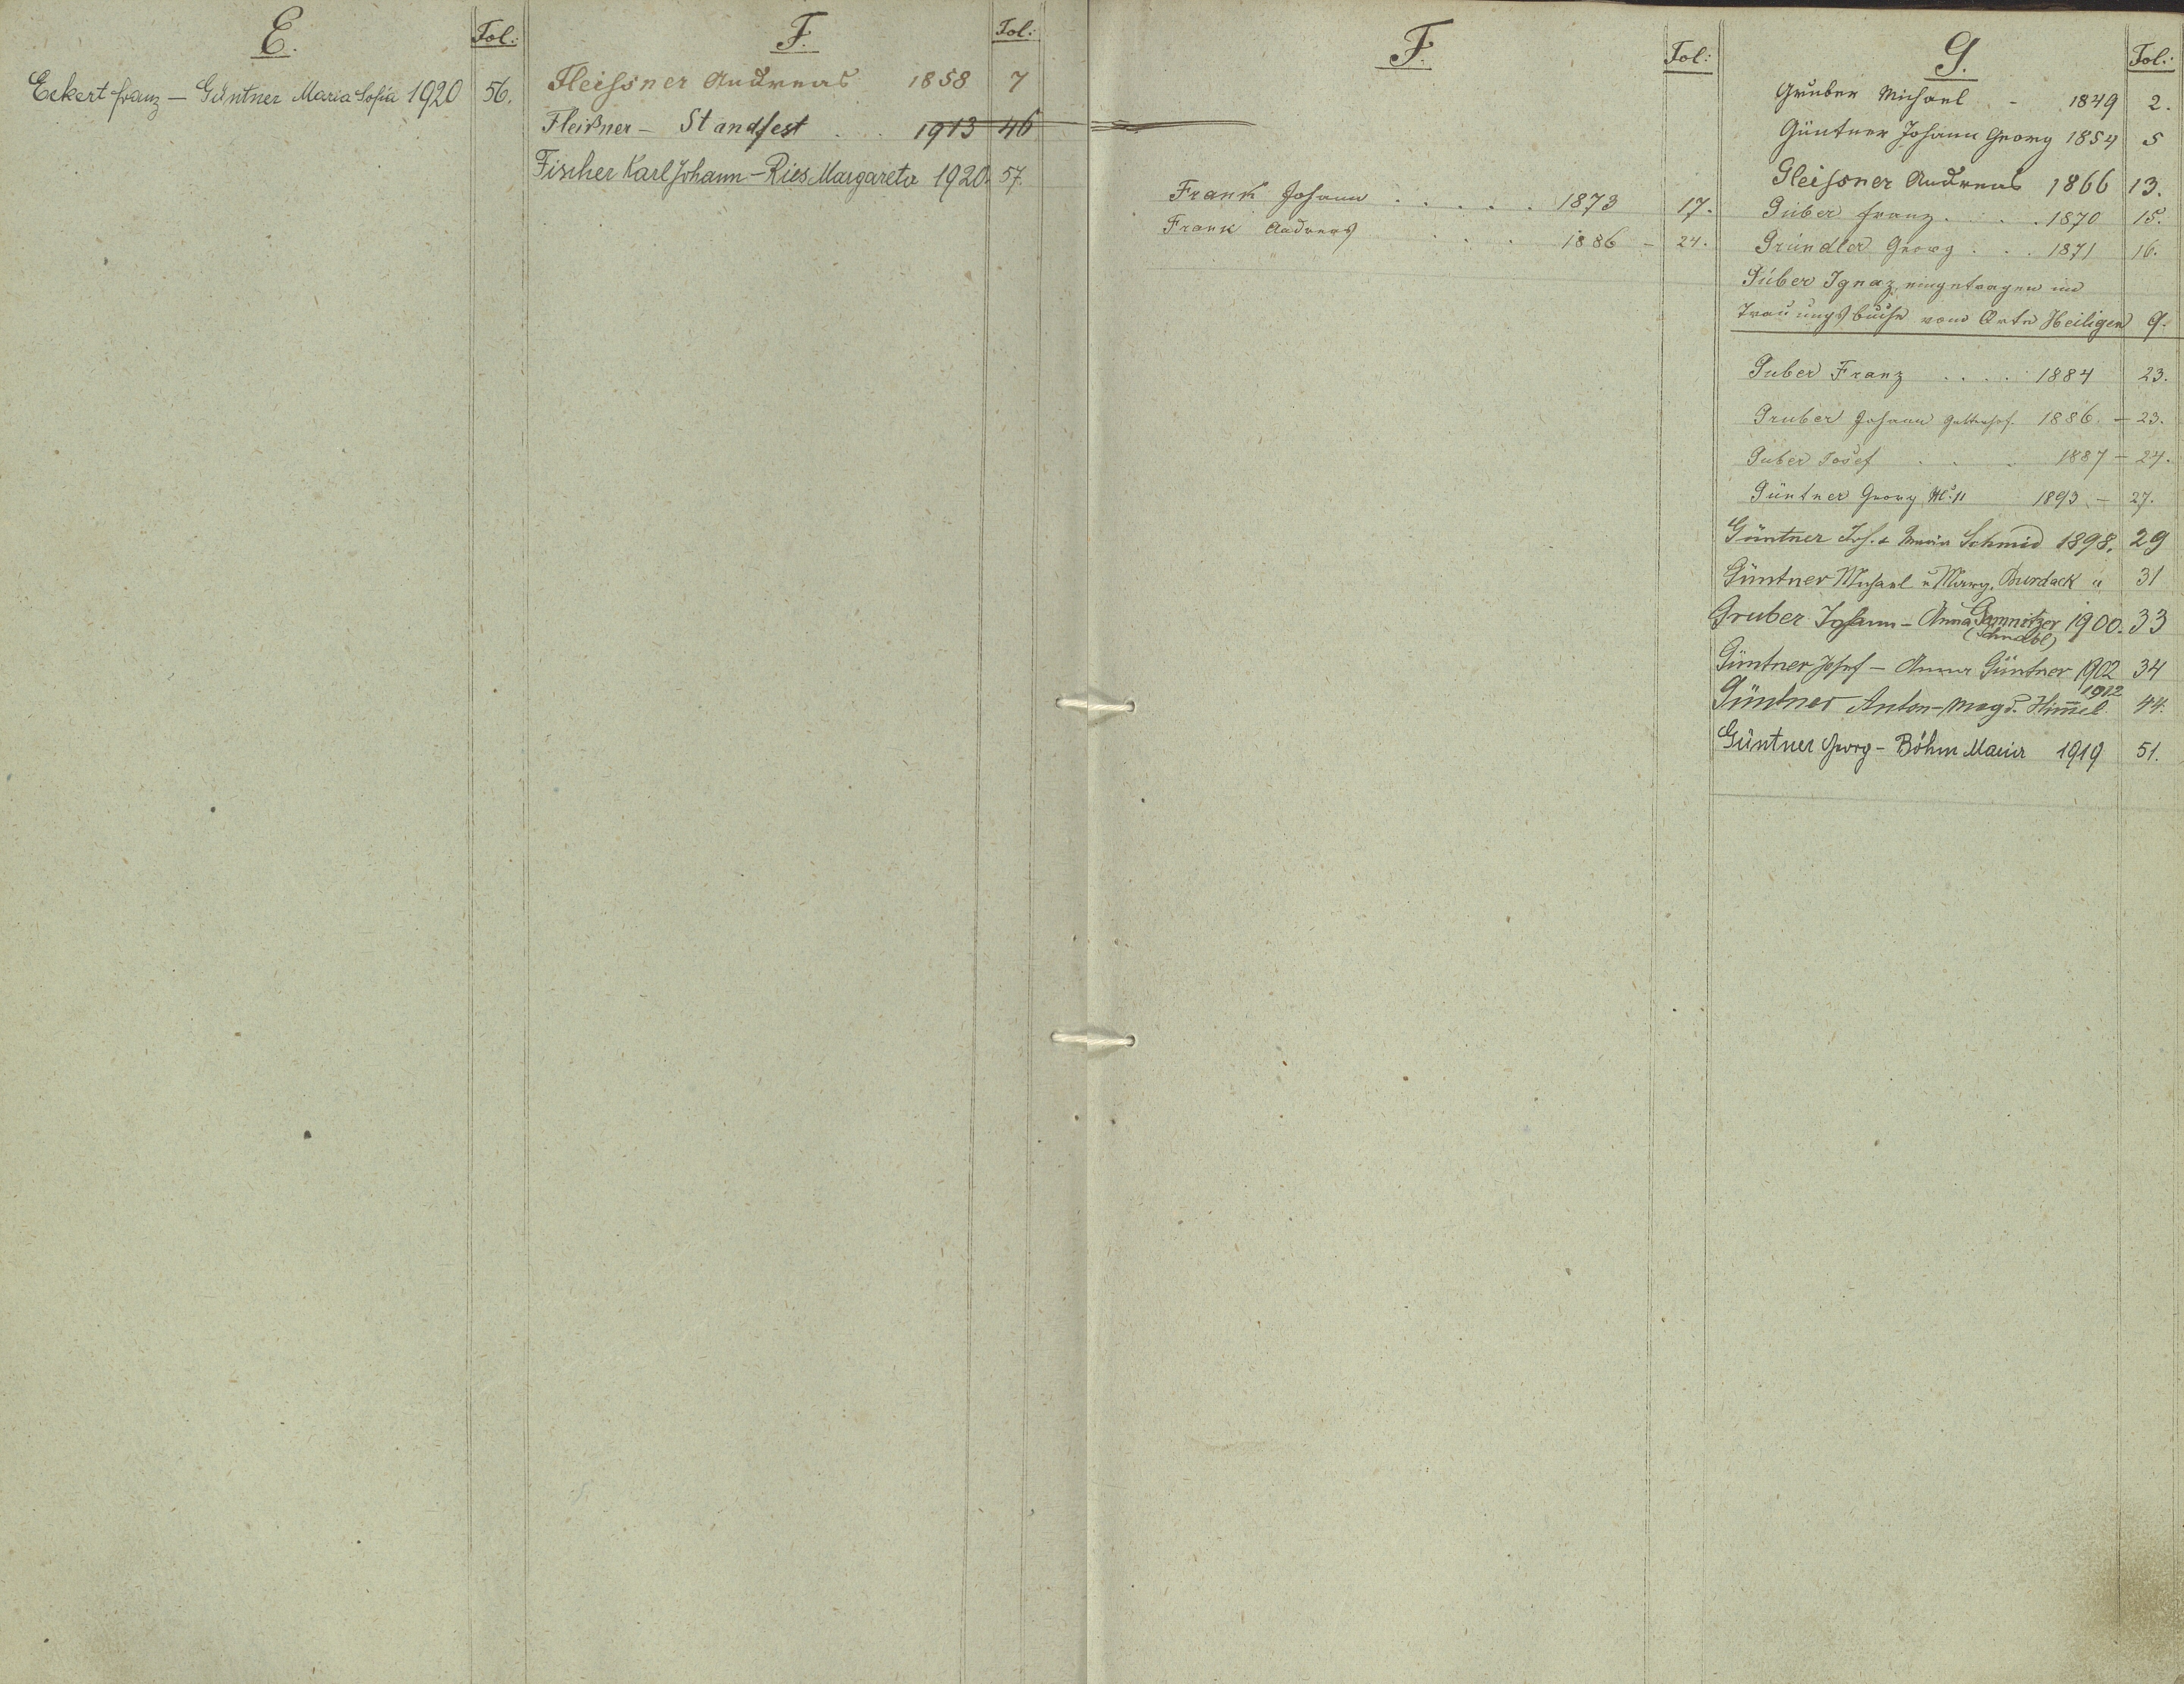 E. Fol.:
Eckert Franz - Güntner Maria Sofia 1920 56.
F. Fol.:
Fleissner Andreas 1858 7
Fleißner - Standfest . . . 1913 46
Fischer Karl Johann - Ries Margareta 1920. 57.
F. Fol:
Frank Johann . . . . . 1873 17.
Frank Andreas . . . 1886 - 24.
G. Fol.:
Gruber Michael - 1849 2.
Güntner Johann Georg 1854 5
Gleissner Andreas 1866 13.
Guber Franz . . . 1870 15.
Gründler Georg . . . 1871 16.
Guber Ignaz eingetragen im
Trauungsbuche vom Orte Heiligen 9.
Guber Franz . . . . 1884 23.
Gruber Johann 1886. - 23.
Guber Josef . . . 1887 - 24.
Güntner Georg No. 11 1893 - 27.
Güntner Joh. & Maria Schmid 1898. 29
Güntner Michael u Marg. Burdack " 31
Gruber Johann - Anna Gamnitzer 1900. 33
(Schnabl)
Güntner Josef - Anna Güntner 1902 34
Güntner Anton - Magd. Him̅el 1912 44.
Güntner Georg - Böhm Maria 1919 51.